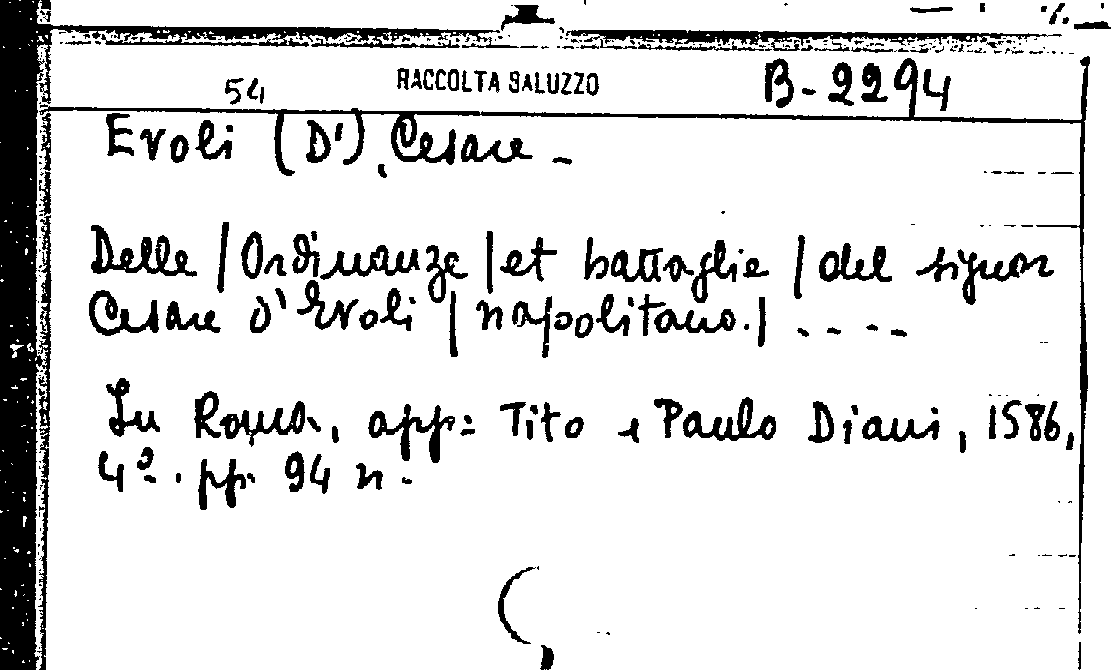 54 RACCOLTA SALUZZO B-2294
Evoli (D'), Cesare -
Delle | Ordinanze | et battaglie | del signor
Cesare d'Evoli | napolitano. | - - - -
In Roma, app: Tito e Paulo Diani, 1586,
4º. pp. 94 n.